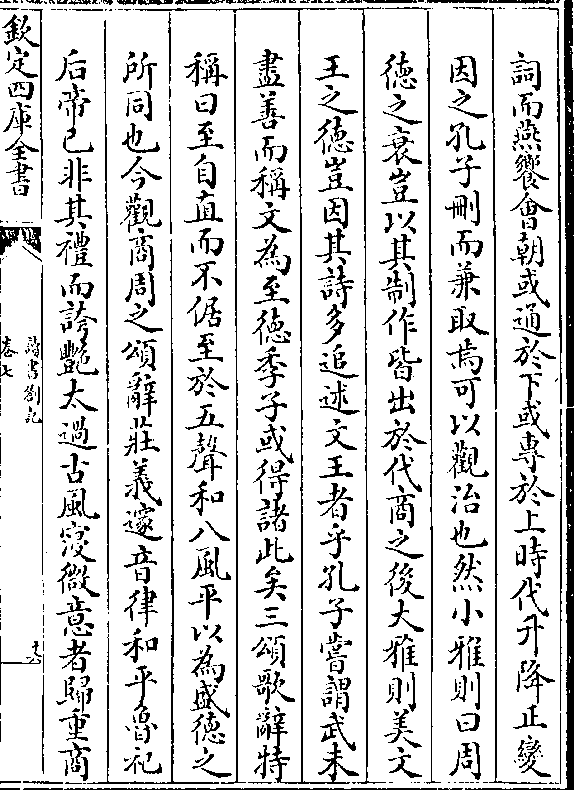 詞而燕饗會朝或通於下或專於上時代升降正變
因之孔子刪而兼取焉可以觀治也然小雅則曰周
德之衰豈以其制作皆出於代商之後大雅則美文
王之德豈因其詩多追述文王者乎孔子嘗謂武未
盡善而稱文為至德季子或得諸此矣三頌歌辭特
稱曰至自直而不倨至於五聲和八風平以為盛德之
所同也今觀商周之頌辭莊義邃音律和平魯祀
后帝已非其禮而誇艷太過古風寖微意者歸重商
欽定四庫全書
讀書劄記
卷七
十六